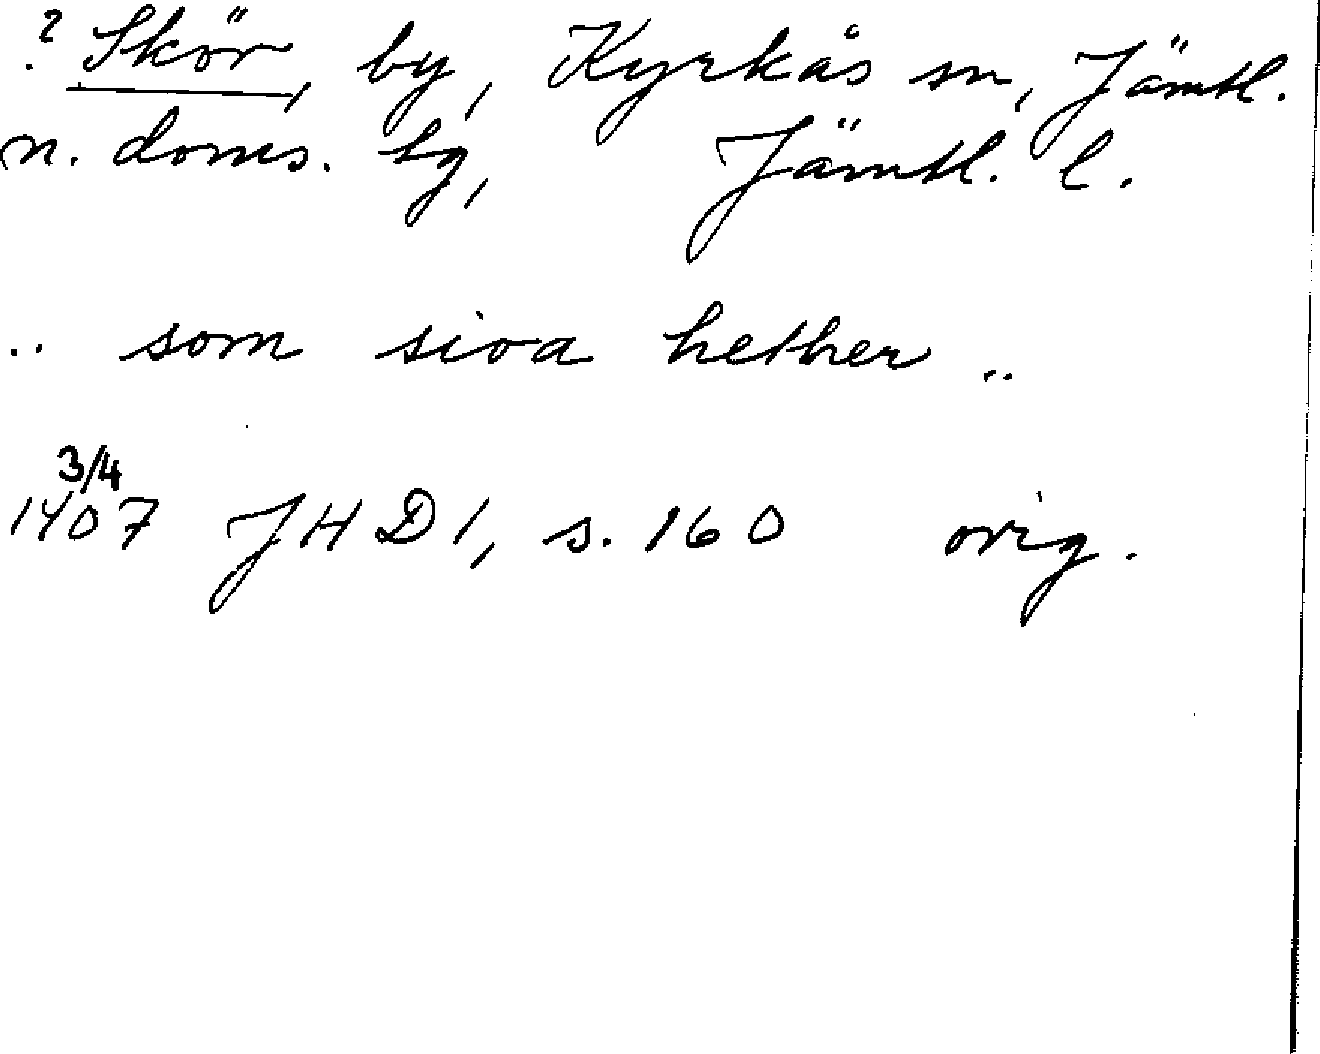 ? Skör, by, Kyrkås sn, Jämtl.
n. doms. tg, Jämtl. l.
.. som siva hether ..
3/4
1407 JHD 1, s. 160 orig.